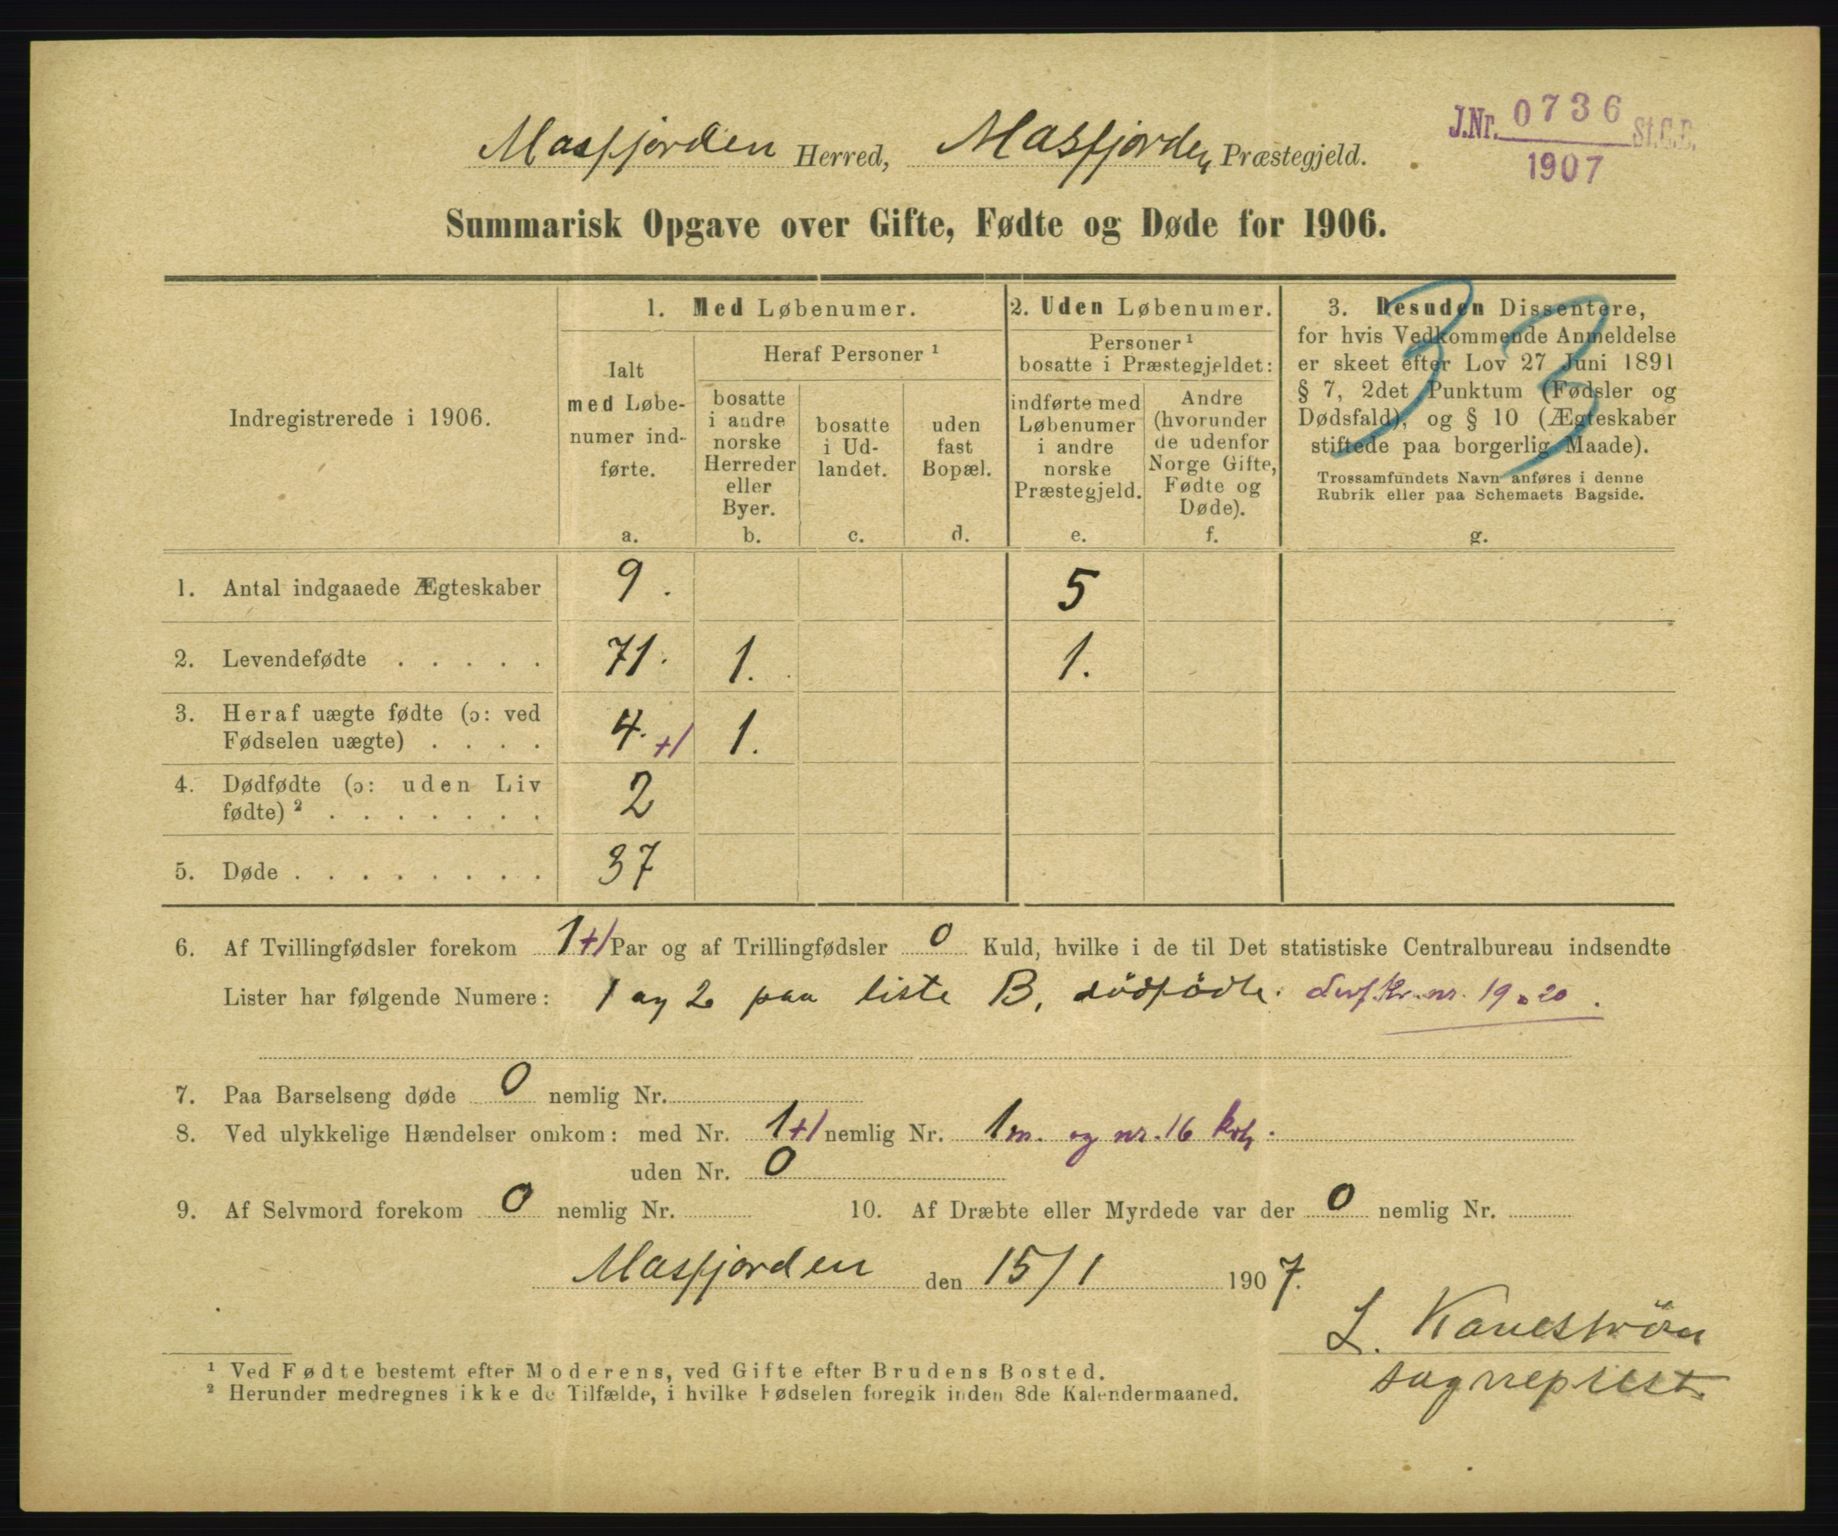 J.Nr. 0736 St.C.B.
1907
Masfjorden Herred, Masfjorden Præstegjeld.
Summarisk Opgave over Gifte, Fødte og Døde for 1906.
33
Indregistrerede i 1906.
1. Med Løbenumer.
Ialt
med Løbe-
numer ind-
førte.
a.
Heraf Personer ¹
bosatte
i andre
norske
Herreder
eller
Byer.
b.
bosatte
i Ud-
landet.
c.
uden
fast
Bopæl.
d.
2. Uden Løbenumer.
Personer ¹
bosatte i Præstegjeldet:
indførte med
Løbenumer
i andre
norske
Præstegjeld.
e.
Andre
(hvorunder
de udenfor
Norge Gifte,
Fødte og
Døde).
f.
3. Desuden Dissentere,
for hvis Vedkommende Anmeldelse
er skeet efter Lov 27 Juni 1891
§ 7, 2det Punktum (Fødsler og
Dødsfald), og § 10 (Ægteskaber
stiftede paa borgerlig Maade).
Trossamfundets Navn anføres i denne
Rubrik eller paa Schemaets Bagside.
g.
1. Antal indgaaede Ægteskaber 9. 5
2. Levendefødte . . . . . 71. 1. 1.
3. Heraf uægte fødte (ɔ: ved
Fødselen uægte) . . . . 4. +1 1.
4. Dødfødte (ɔ: uden Liv
fødte) ² . . . . . . . 2
5. Døde . . . . . . . . 37
6. Af Tvillingfødsler forekom 1 +1 Par og af Trillingfødsler 0 Kuld, hvilke i de til Det statistiske Centralbureau indsendte
Lister har følgende Numere: 1 og 2 paa liste B, dödfödte. lev. f. Kv. nr. 19 o 20.
7. Paa Barselseng døde 0 nemlig Nr.
8. Ved ulykkelige Hændelser omkom: med Nr. 1 +1 nemlig Nr. 1 m. og nr. 16 kv.
uden Nr. 0
9. Af Selvmord forekom 0 nemlig Nr.
10. Af Dræbte eller Myrdede var der 0 nemlig Nr.
Masfjorden den 15/1 1907.
L. Kanestrøm
sogneprest.
¹ Ved Fødte bestemt efter Moderens, ved Gifte efter Brudens Bosted.
² Herunder medregnes ikke de Tilfælde, i hvilke Fødselen foregik inden 8de Kalendermaaned.